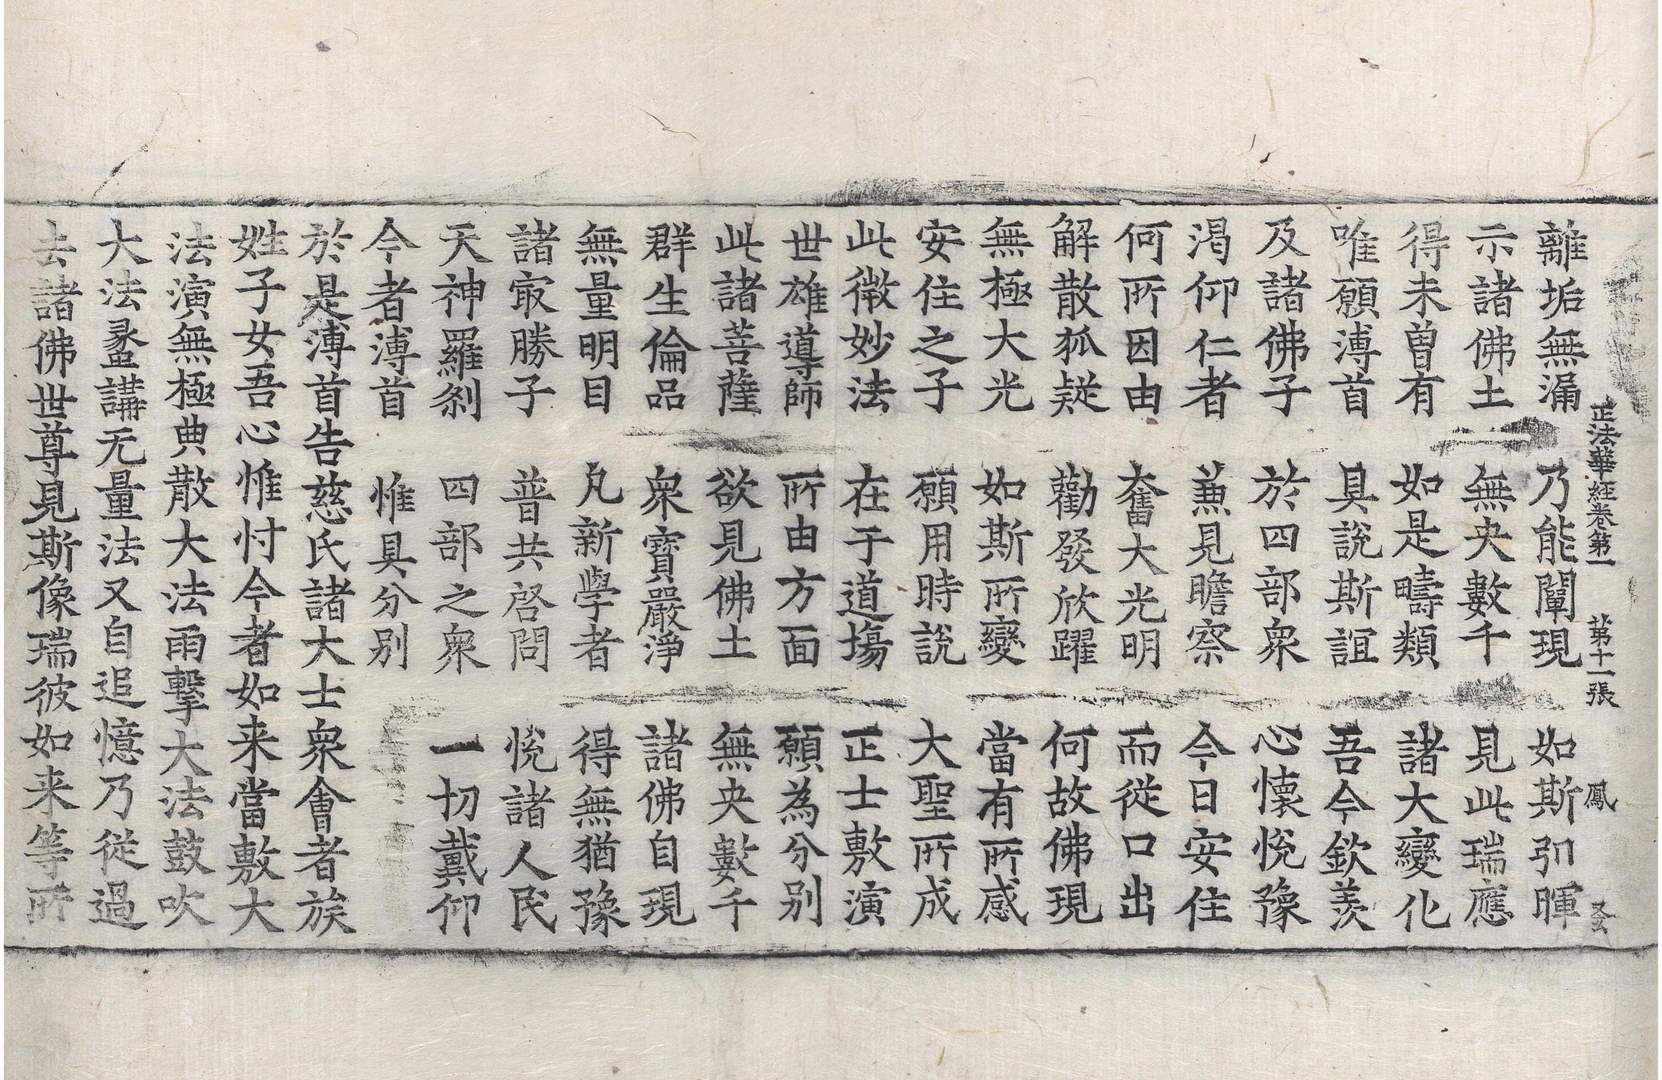 正法華經卷第一 第十一張 鳳
離垢無漏 乃能闡現 如斯弘暉
示諸佛土 無央數千 見此瑞應
得未曾有 如是疇類 諸大變化
唯願溥首 具說斯誼 吾今欽羨
及諸佛子 於四部衆 心懷悅豫
渴仰仁者 兼見瞻察 今日安住
何所因由 奮大光明 而從口出
解散狐疑 勸發欣躍 何故佛現
無極大光 如斯所變 當有所感
安住之子 願用時說 大聖所成
此微妙法 在于道場 正士敷演
世雄導師 所由方面 願為分別
此諸菩薩 欲見佛土 無央數千
群生倫品 衆寶嚴淨 諸佛自現
無量明目 凡新學者 得無猶豫
諸冣勝子 普共啓問 悅諸人民
天神羅刹 四部之衆 一切戴仰
今者溥首 惟具分別
於是溥首告慈氏諸大士衆會者族
姓子女吾心惟忖今者如来當敷大
法演無極典散大法雨擊大法鼓吹
大法蠡講无量法又自追憶乃從過
去諸佛世尊見斯像瑞彼如来等所